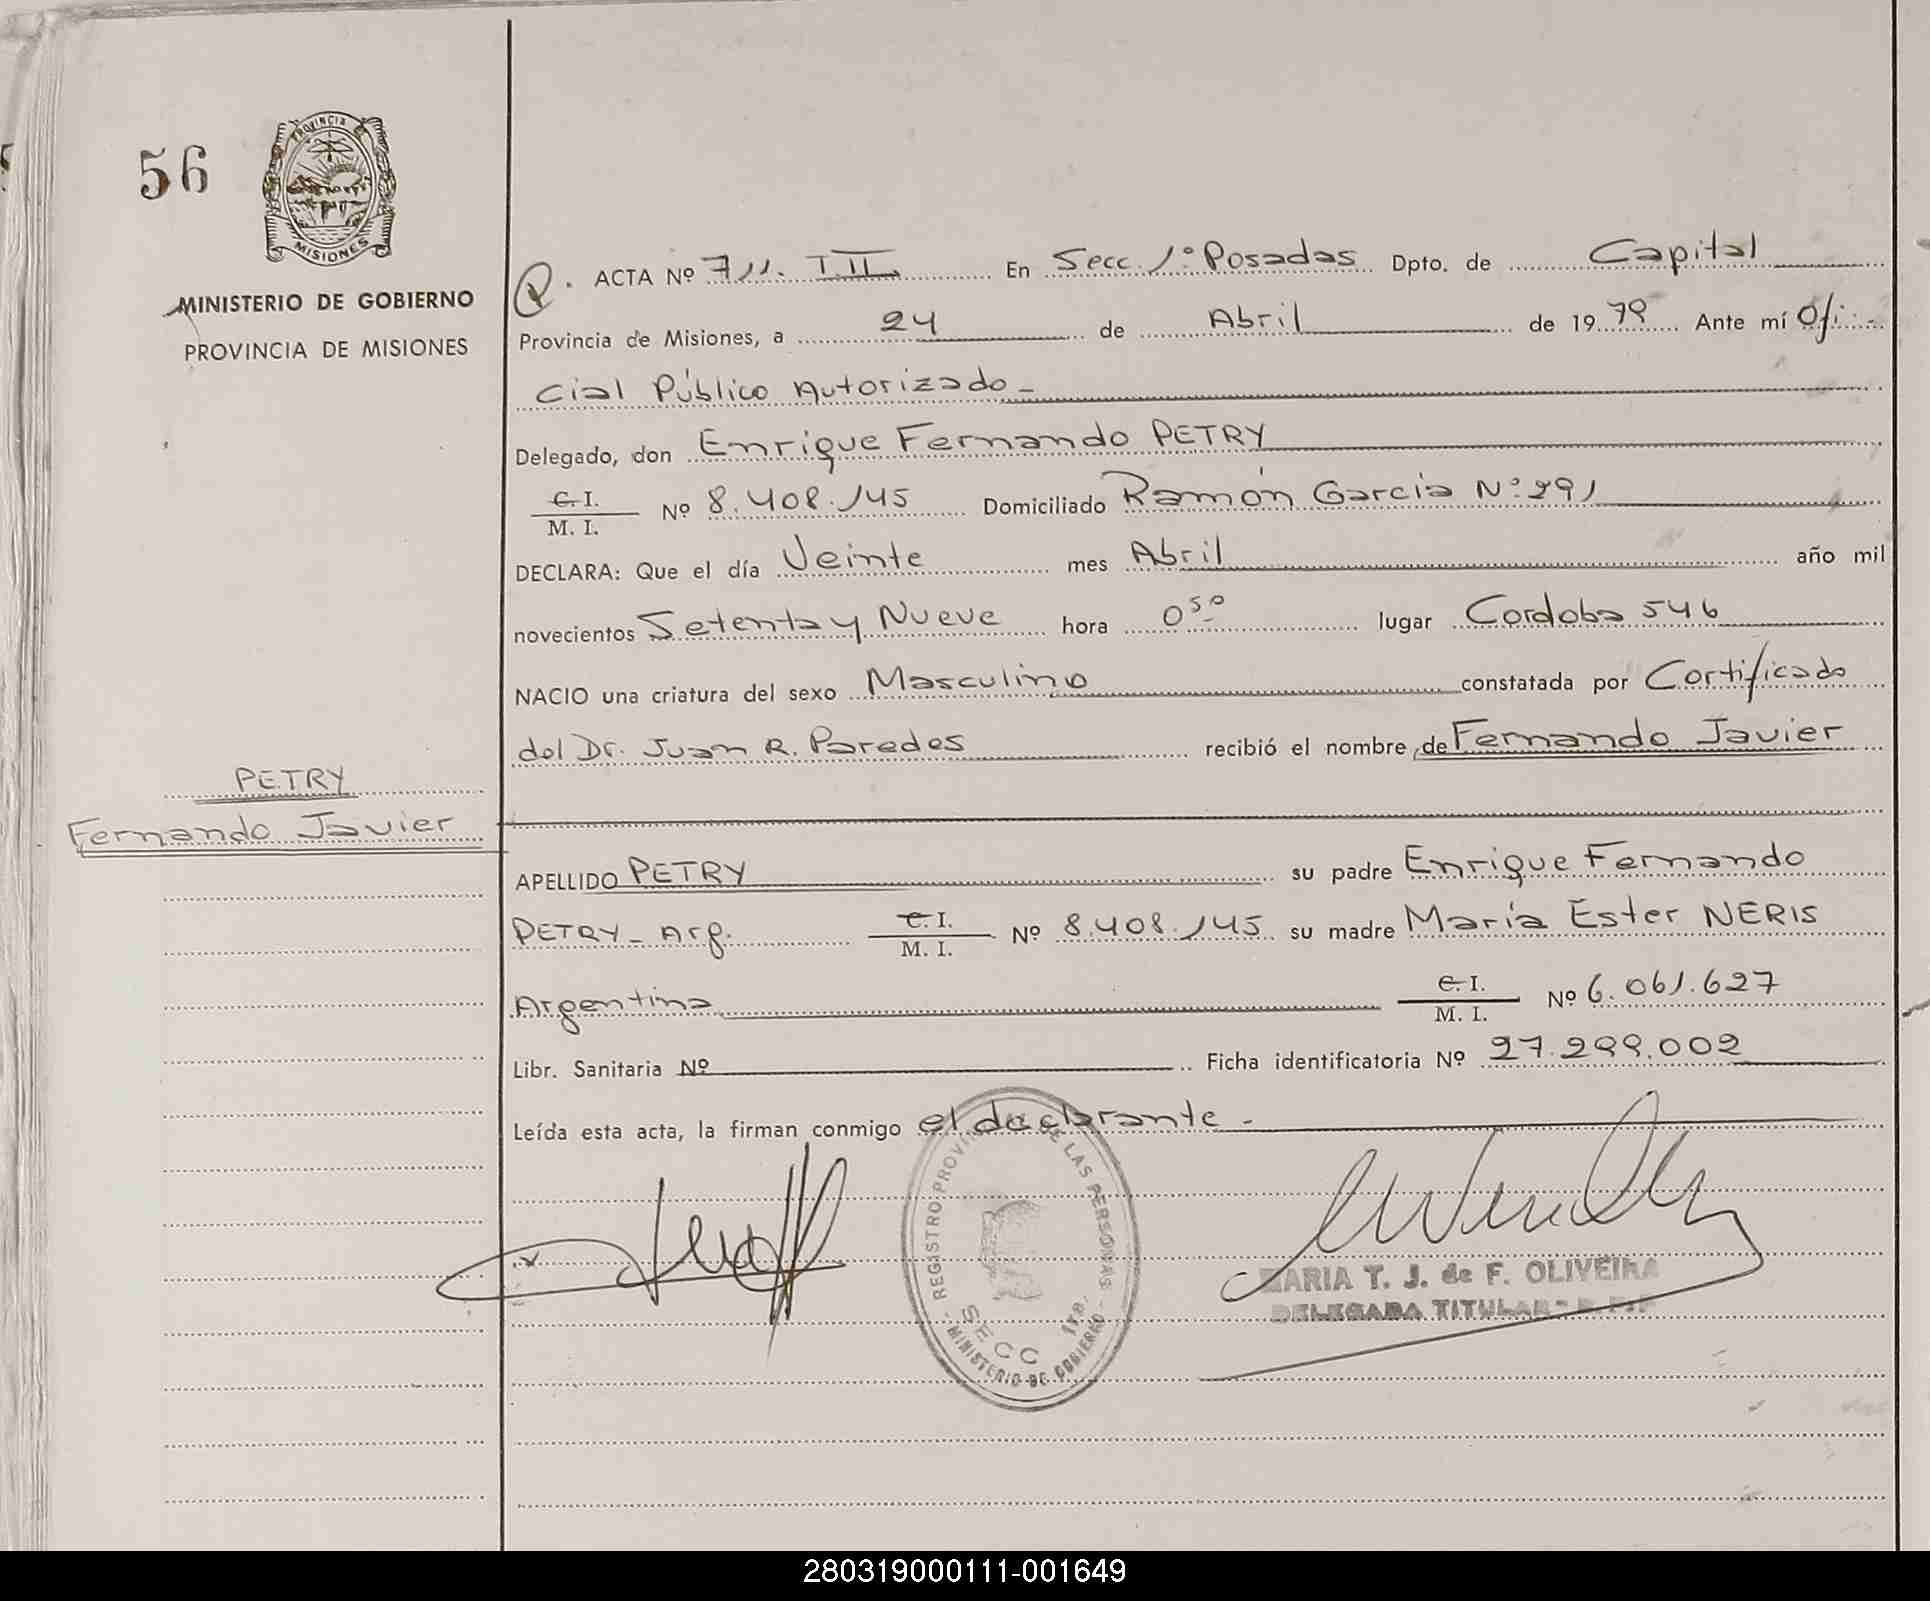 56
PROVINCIA DE
MISIONES
MINISTERIO DE GOBIERNO
PROVINCIA DE MISIONES
ACTA Nº 711. T.II En Secc. 1º Posadas Dpto. de Capital
Provincia de Misiones, a 24 de Abril de 19 79 Ante mí Ofi-
cial Público Autorizado-
Delegado, don Enrique Fernando PETRY
C.I.
M. I. Nº 8.408.145 Domiciliado Ramón García Nº 291
DECLARA: Que el día Veinte mes Abril año mil
novecientos Setenta y Nueve hora 0⁵⁰ lugar Cordoba 546
NACIO una criatura del sexo Masculino constatada por Certificado
del Dr. Juan R. Paredes recibió el nombre de Fernando Javier
PETRY
Fernando Javier
APELLIDO PETRY su padre Enrique Fernando
PETRY - Arg. C.I.
M. I. Nº 8.408.145 su madre María Ester NERIS
Argentina C.I.
M. I. Nº 6.061.627
Libr. Sanitaria Nº Ficha identificatoria Nº 27.299.002
Leída esta acta, la firman conmigo el declarante -
REGISTRO PROVINCIAL DE LAS PERSONAS
SECC 1ra.
MINISTERIO DE GOBIERNO
MARIA T. J. de F. OLIVEIRA
DELEGADA TITULAR
280319000111-001649